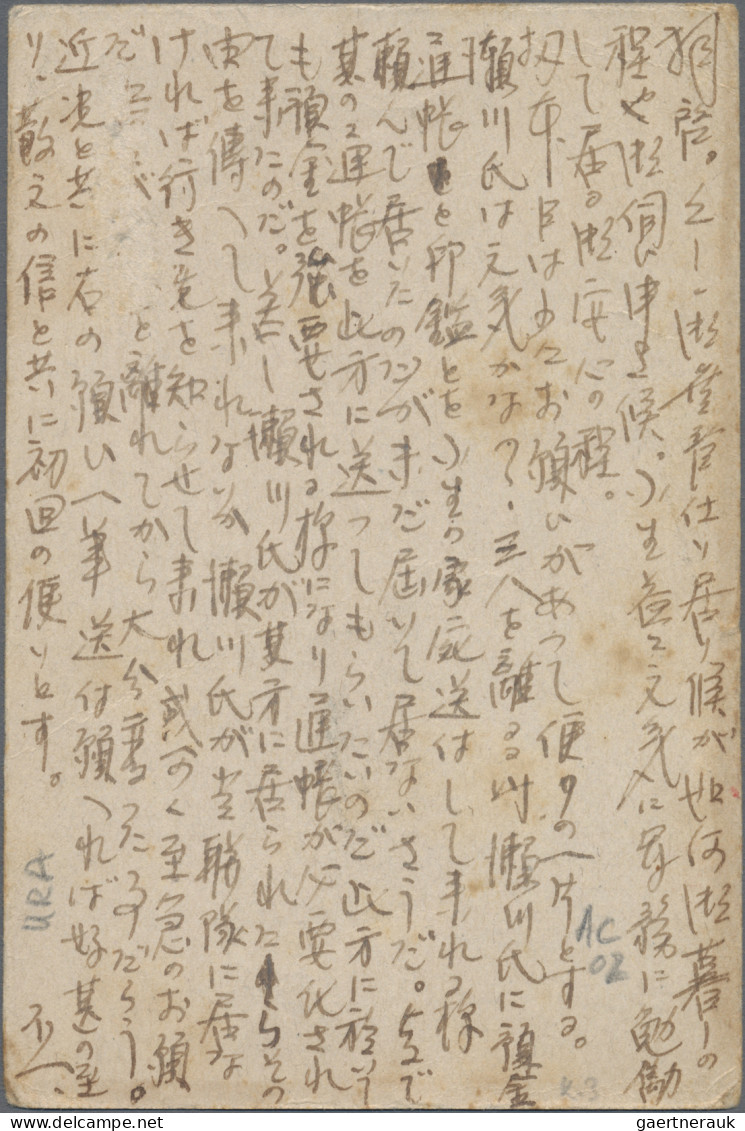 拝啓。久しく御無音仕り居り候が如何御暮しの
程や御伺ひ申上候。小生益々元気に軍務に勉励
して居る御安心の程。
扨本日は少々お願ひがあつて便りの一片とする。
瀬川氏は元気かな?・三八を離るる時瀬川氏に預金
通帳と印鑑とを小生の家宛送付して来れる様
頼んで居いたのだがまだ届いて居ないさうだ。
其の通帳を此方に送つてもらいたいのだ此方に於いて
も預金を強要される様になり通帳が必要化され
て来たのだ。若し瀬川氏が其方に居られたらその
由を傳へて来れないか瀬川氏が当聯隊に居な
ければ行き先を知らせて来れ 至急のお願
だ と離れてから大分変つた事だらう。
近況と共に右の願い一筆送付願へれば好甚の至
り、散文の信と共に初回の便りとす。
不一、
URA
AC
02
K-3
gaertnerauk